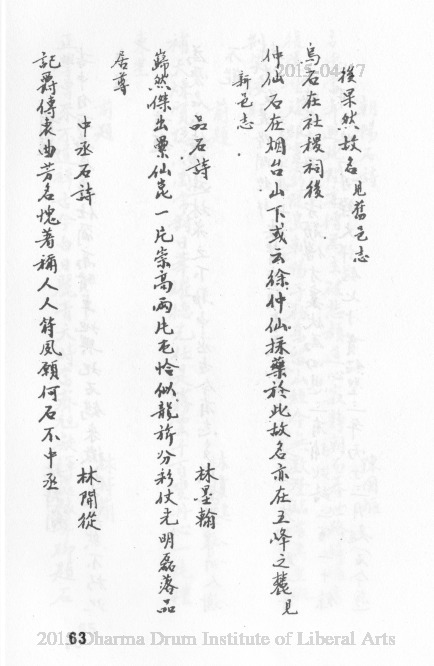 後果然故名見舊邑志
烏石在社稷祠後
仲仙石在烟台山下或云徐仲仙採藥於此故名亦在五峰之麓見
新邑志
品石詩 林墨翰
巋然傑出眾仙崑一片崇高兩片屯恰似龍旂分彩仗光明磊落品
居尊
中丞石詩 林開從
記爵傳衰曲芳名愧著稱人人符風願何石不中丞
2015-04-17
63
2015 Dharma Drum Institute of Liberal Arts